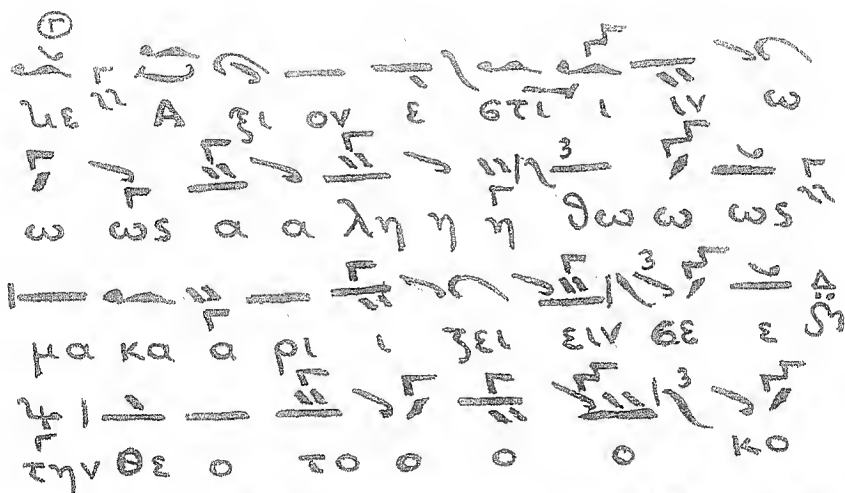 με Α ξι ον ε στι ι ιν ω
ω ως α α λη η η θω ω ως
μα κα α ρι ι ζει ειν σε ε
την Θε ο το ο ο ο κο